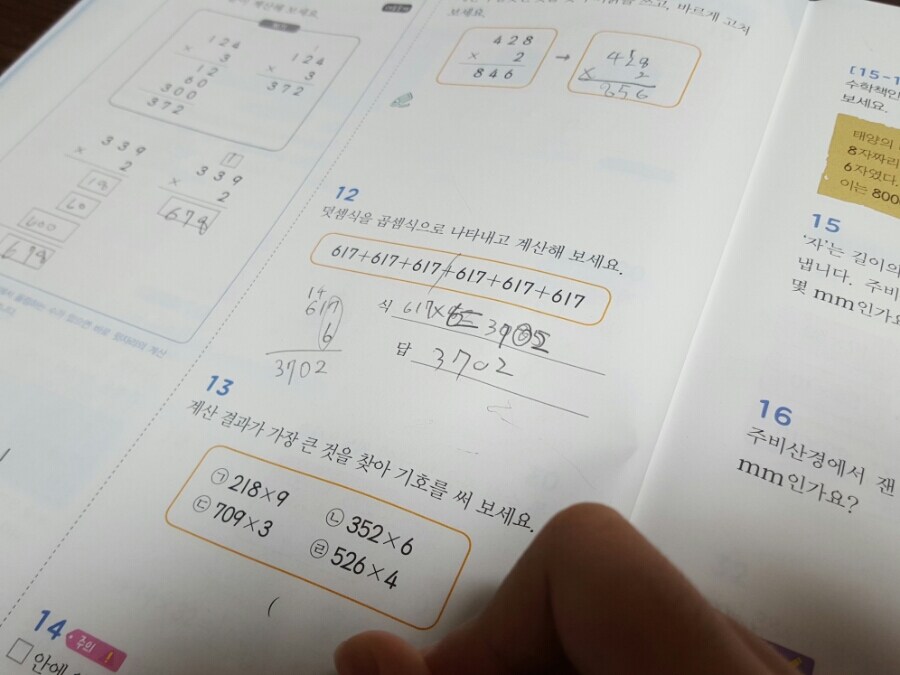 계산해 보세요.
124
× 3
12
60
300
372
124
× 3
372
339
× 2
18
60
600
339
× 2
678
쓰고, 바르게 고쳐
보세요.
428
× 2
846
→
428
× 2
856
12
덧셈식을 곱셈식으로 나타내고 계산해 보세요.
617+617+617+617+617+617
14
617
6
3702
식 617×6=
답 3702
13
계산 결과가 가장 큰 것을 찾아 기호를 써 보세요.
㉠ 218×9 ㉡ 352×6
㉢ 709×3 ㉣ 526×4
(
14 주의 !
□ 안에
[15-1
수학책인
보세요.
태양의
8자짜리
6자였다.
이는 800
15
'자'는 길이의
냅니다. 주비
몇 mm인가요
16
주비산경에서 잰
mm인가요?